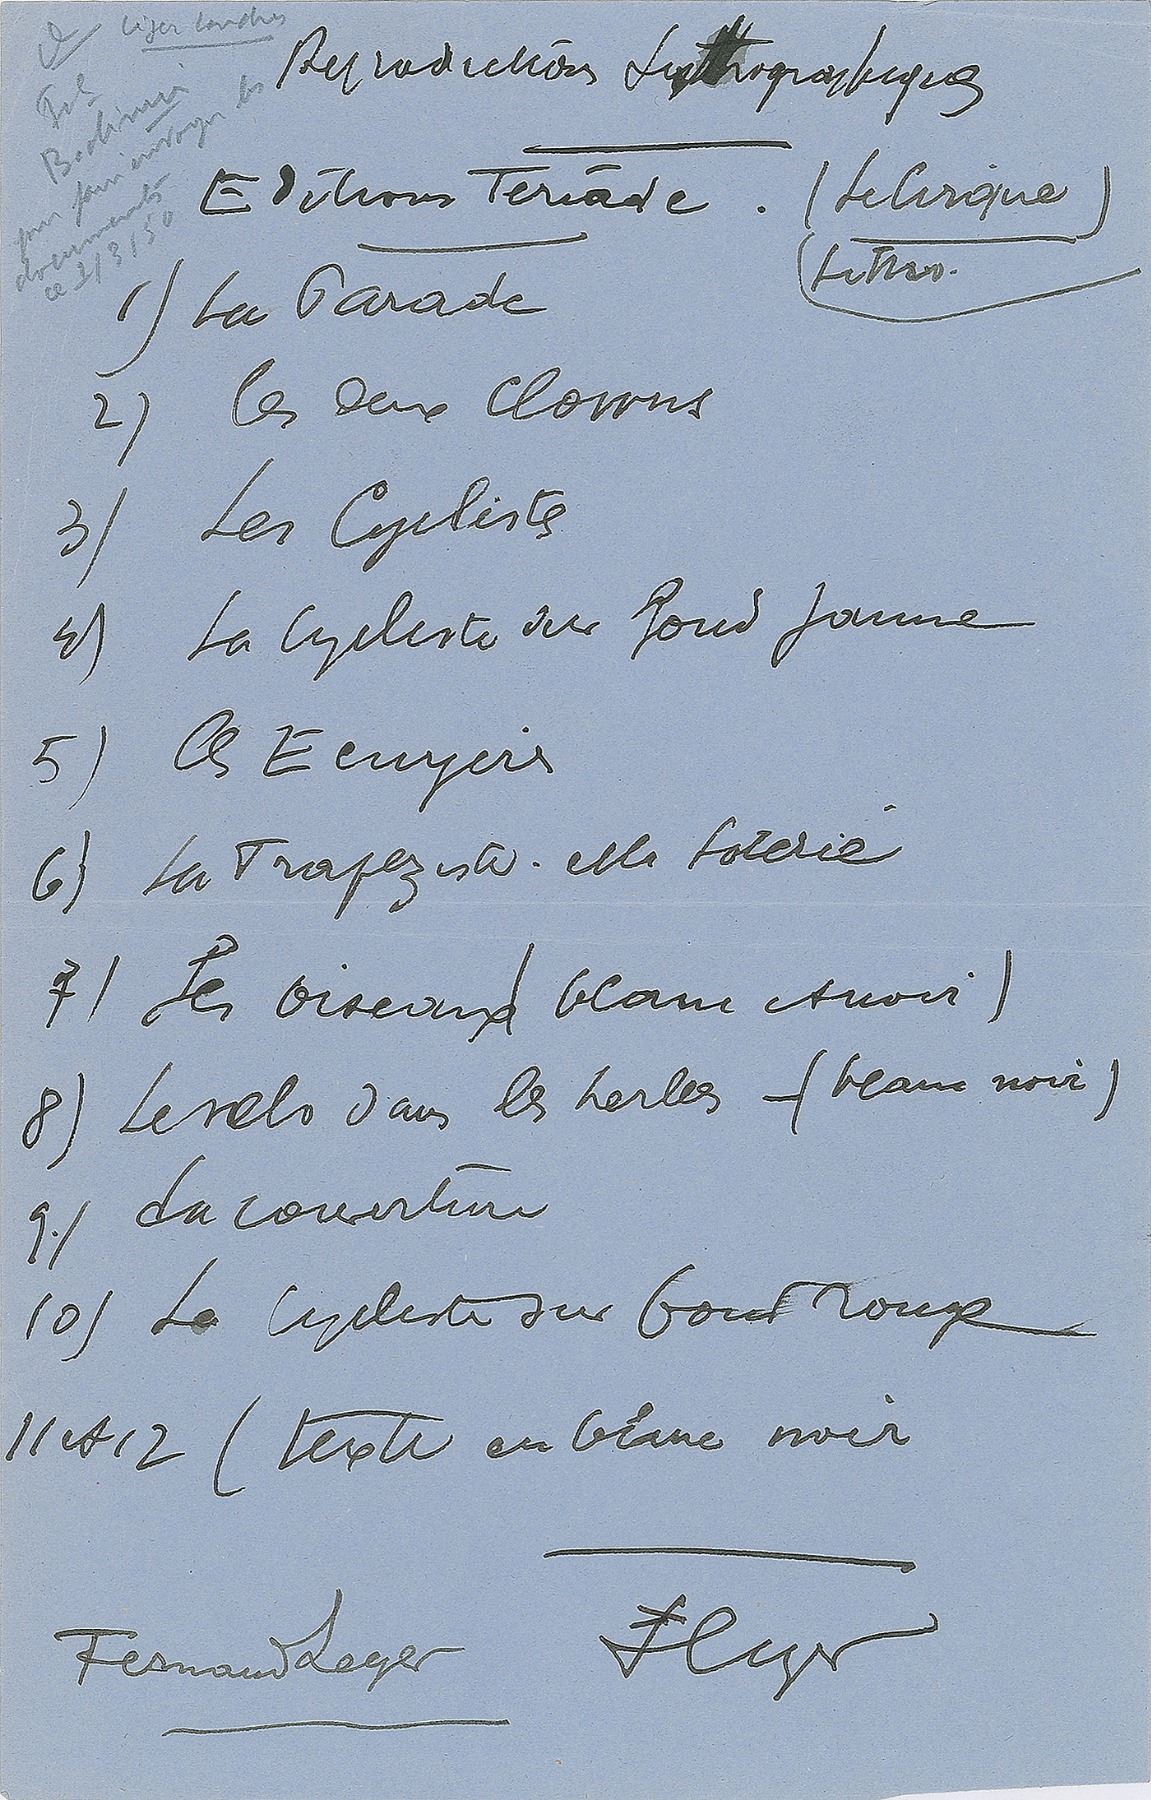 Leger Londres
Tel
pour faire envoyer les
documents
ce 2/3/50
Reproductions Lithographiques
Editions Teriade . (Le Cirque)
(Litho.
1) La Parade
2) Les deux Clowns
3) Les Cyclistes
4) La Cycliste sur fond jaune
5) Les Ecuyeres
6) La Trapeziste. et la Loterie
7) Les Oiseaux (blanc et noir)
8) Le velo dans les herbes - (blanc noir)
9.) La couverture
10) La Cycliste sur fond rouge
11 et 12 (texte en blanc noir
Fernand Leger
FLeger